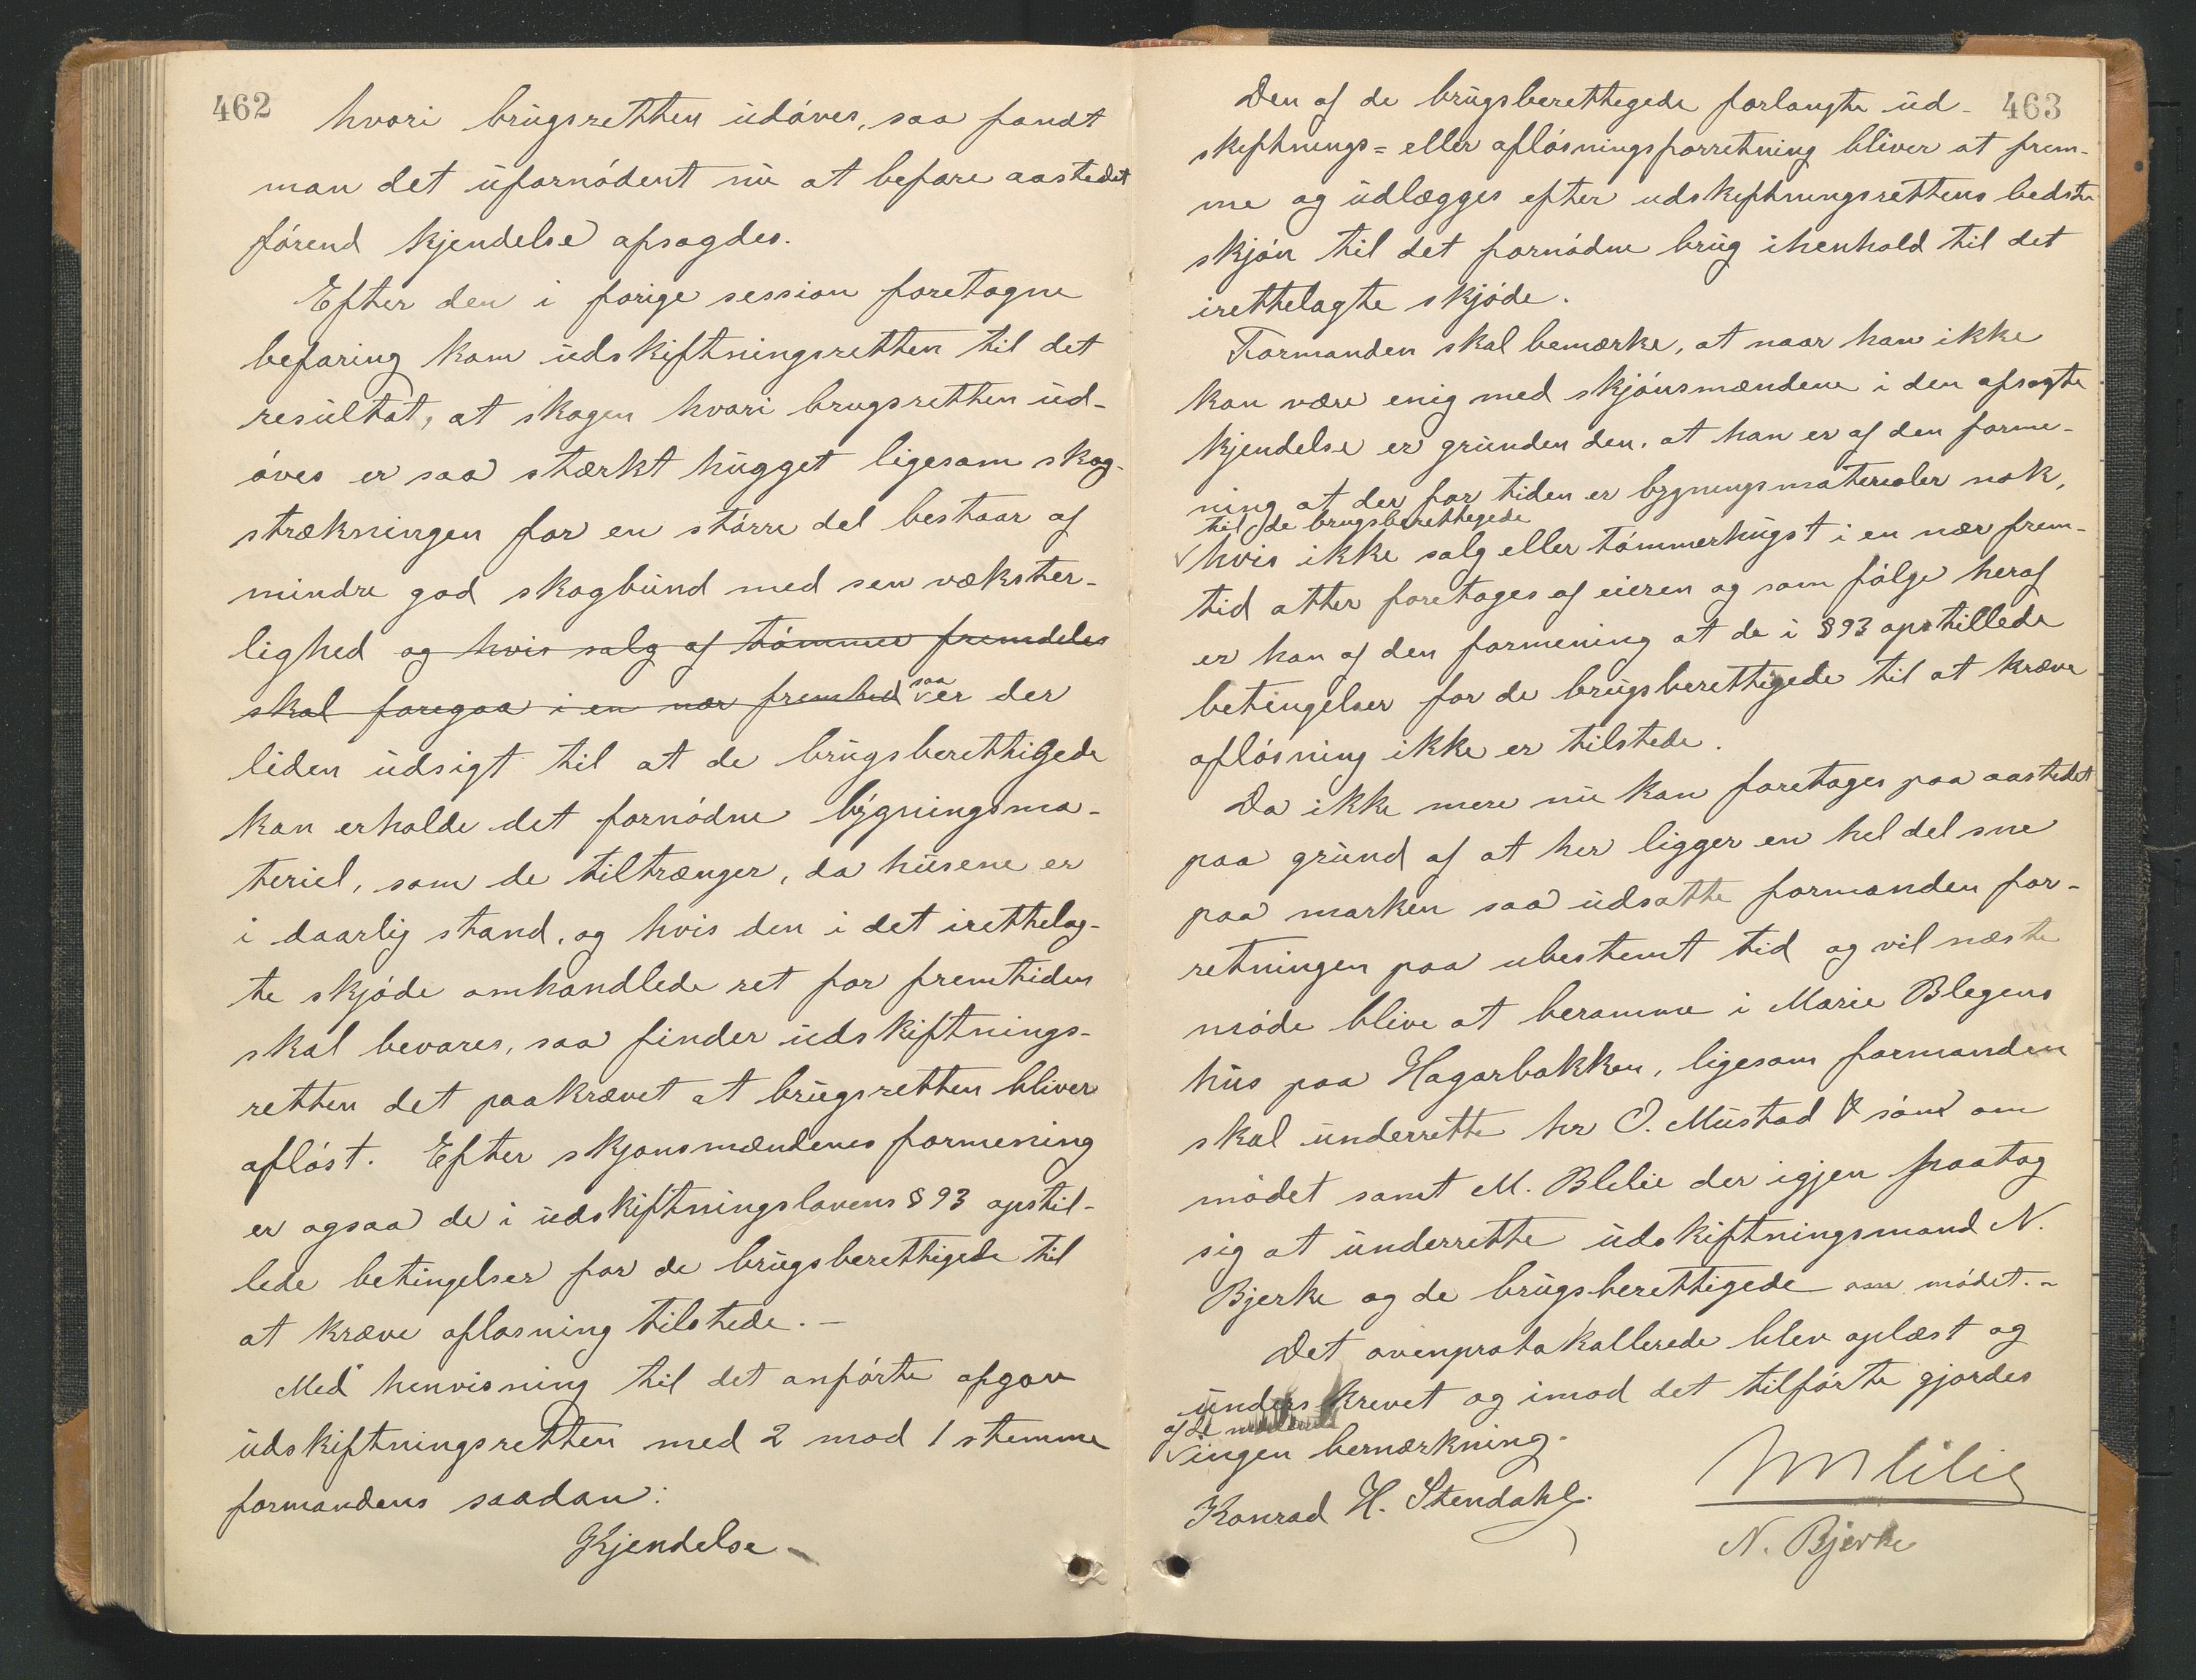 462
hvori brugsretten udøves, saa fandt
man det ufornødent nu at befare aastedet
førend kjendelse afsagdes.
Efter den i forige session foretagne
befaring kom udskiftningsretten til det
resultat, at skogen hvori brugsretten ud-
øves er saa stærkt hugget ligesom skog-
strækningen for en større del bestaar af
mindre god skogbund med sen vækster-
lighed og hvis salg af tømmer fremdeles
skal foregaa i en nær fremtid saa er der
liden udsigt til at de brugsberettigede
kan erholde det fornødne bygningsma-
teriel, som de tiltrænger, da husene er
i daarlig stand, og hvis den i det irettelag-
te skjøde omhandlede ret for fremtiden
skal bevares, saa finder udskiftnings-
retten det paakrævet at brugsretten bliver
afløst. Efter skjønsmændenes formening
er ogsaa de i udskiftningslovens § 93 opstil-
lede betingelser for de brugsberettigede til
at kræve afløsning tilstede. -
Med henvisning til det anførte afgav
udskiftningsretten med 2 mod 1 stemme
formandens saadan:
Kjendelse -
463
Den af de brugsberettegede forlangte ud-
skiftnings= eller afløsningsforretning bliver at frem-
me og udlægges efter udskiftningsrettens bedste
skjøn til det fornødne brug ihenhold til det
irettelagte skjøde.
Formanden skal bemærke, at naar han ikke
kan være enig med skjønsmændene i den afsagte
kjendelse er grunden den, at han er af den forme-
ning at der for tiden er bygningsmaterialer nok,
til de brugsberettegede
hvis ikke salg eller tømmerhugst i en nær frem-
tid atter foretages af eieren og som følge heraf
er han af den formening at de i § 93 opstillede
betingelser for de brugsberettigede til at kræve
afløsning ikke er tilstede.
Da ikke mere nu kan foretages paa aastedet
paa grund af at her ligger en hel del sne
paa marken saa udsatte formanden for-
retningen paa ubestemt tid og vil næste
møde blive at beramme i Marie Blegens
hus paa Hagarbakken, ligesom formanden
skal underrette hr O. Mustad & søn om
mødet samt M. Blilie der igjen paatog
sig at underrette udskiftningsmand N.
Bjerke og de brugsberettigede om mødet. -
Det ovenprotokallerede blev oplæst og
underskrevet og imod det tilførte gjordes
af de
ingen bemærkning.
Konrad H. Stendahl.
M Blilie
N. Bjerke